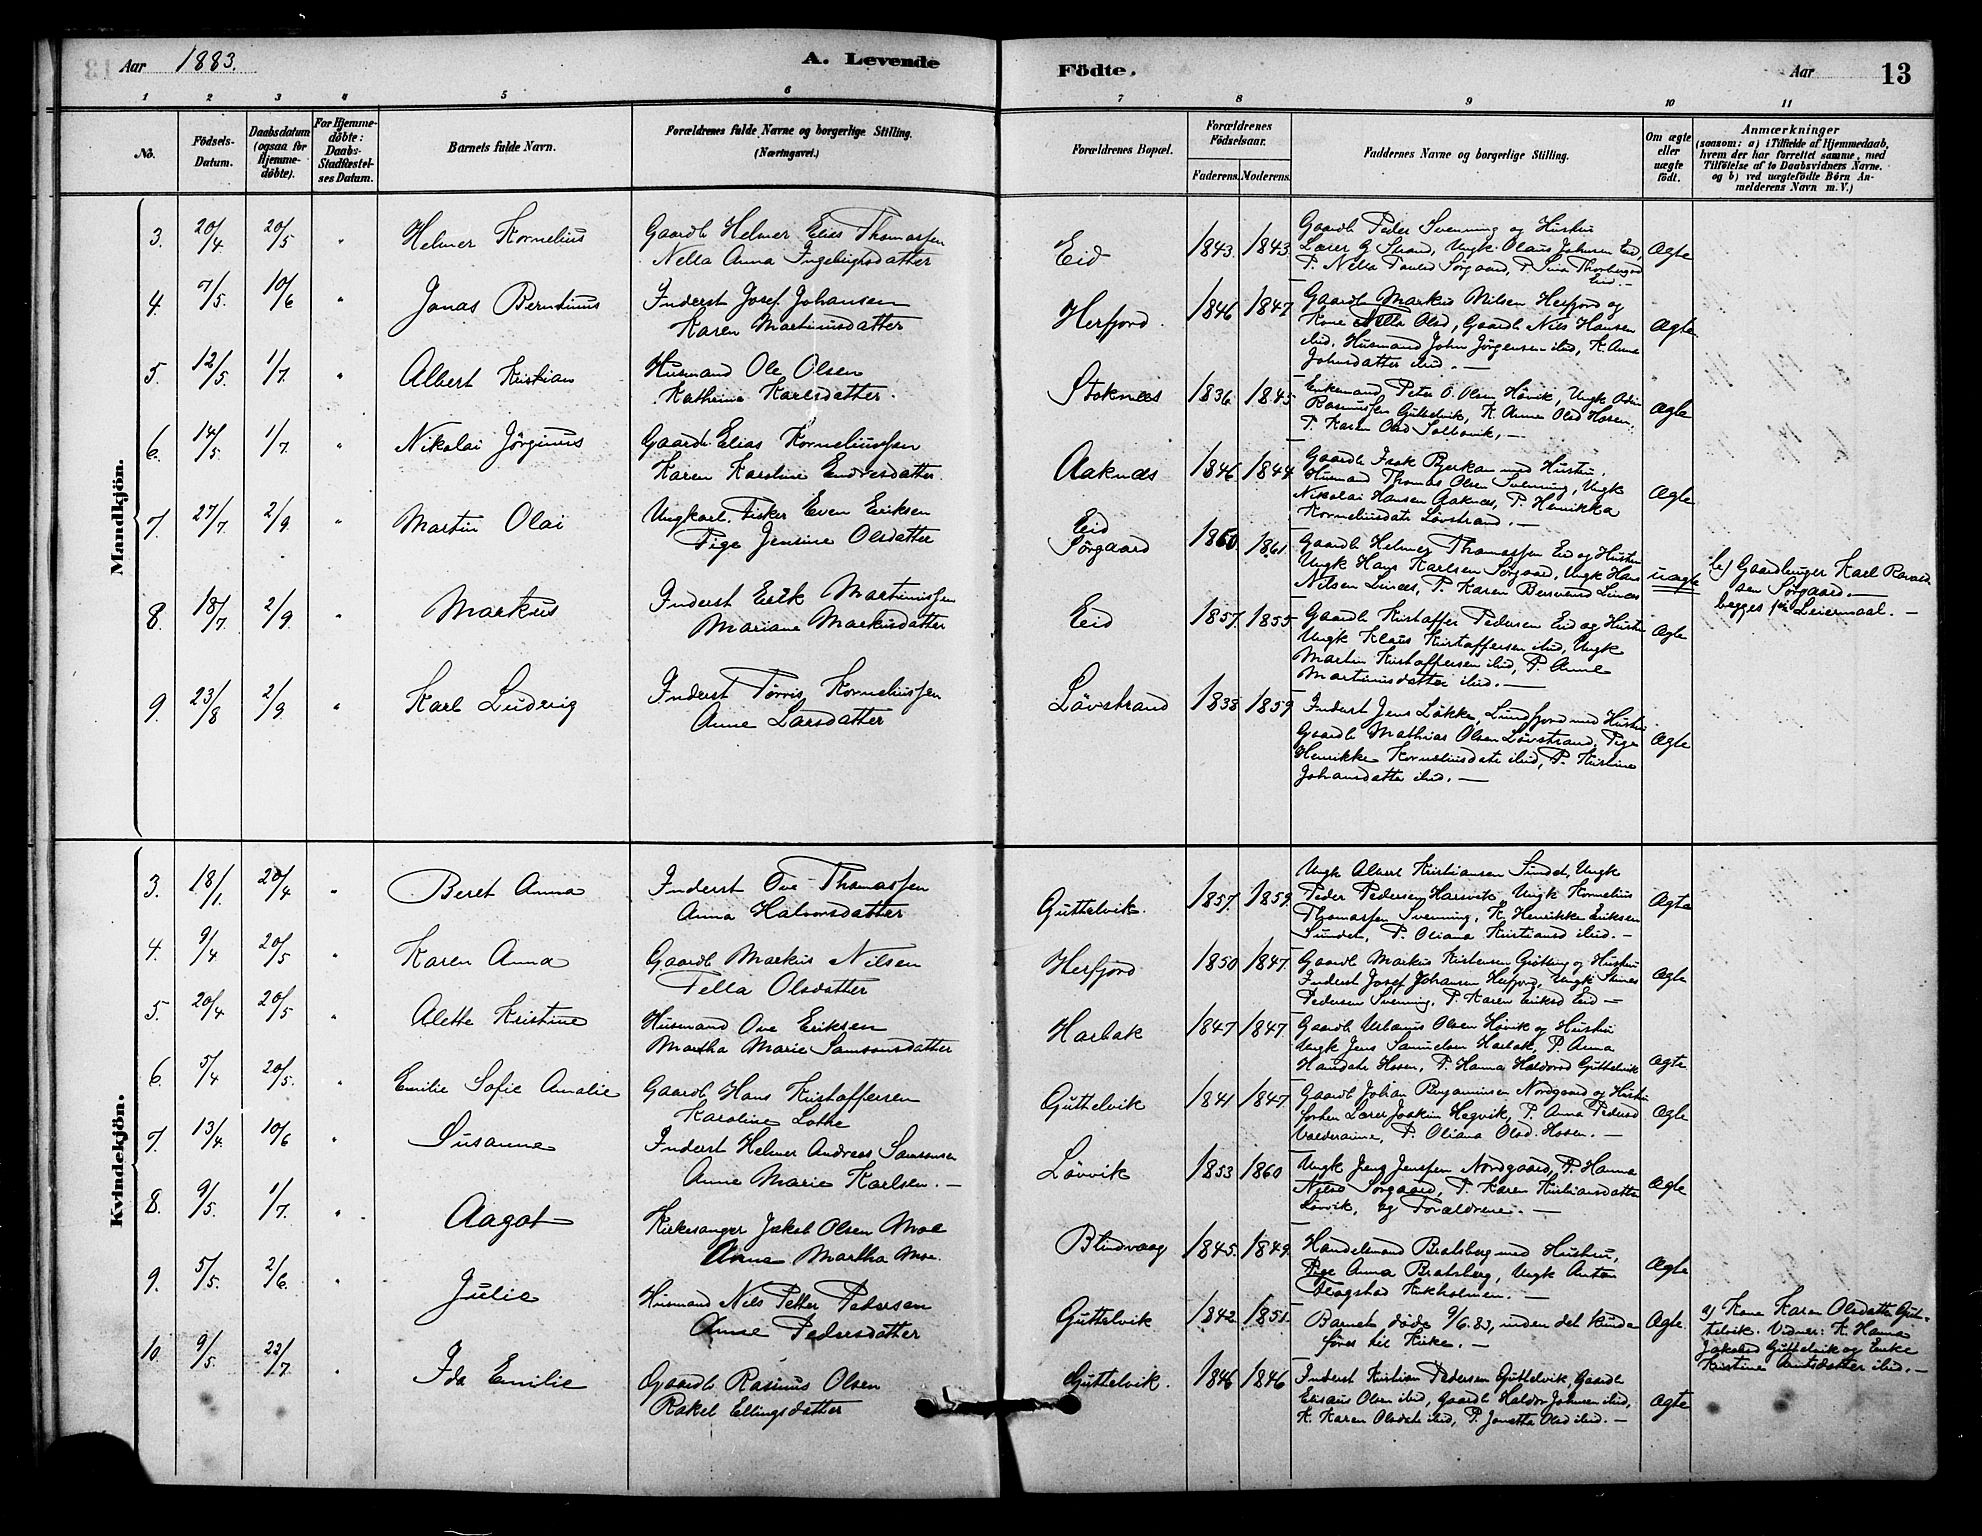 Aar 1883. A. Levende Födte. Aar 13
1 2 3 4 5 6 7 8 9 10 11
No. Födsels-Datum. Daabsdatum (ogsaa for Hjemme-döbte). For Hjemme-döbte: Daabs-Stadfæstel-ses Datum. Barnets fulde Navn. Forældrenes fulde Navne og borgerlige Stilling. (Næringsvei.) Forældrenes Bopæl. Forældrenes Födselsaar. Faderens. Moderens. Faddernes Navne og borgerlige Stilling. Om ægte eller uægte födt. Anmærkninger (saasom: a) i Tilfælde af Hjemmedaab, hvem der har forrettet samme, med Tilföielse af to Daabsvidners Navne. og b) ved uægtefödte Börn An-melderens Navn m. V.)
Mandkjön.
3. 20/4 20/5 " Helmer Kornelius Gaardb Helmer Elias Thomassen
Nella Anna Ingebrigtsdatter
Eid 1843. 1843.
Gaardb Peder Svenning og Hustru
Lærer G. Strand, Ungk. Olaus Johnsen Eid,
P. Nella Paulsd Sörgaard, P. Sina Thorbergsd
Eid. —
Ægte
4. 7/5. 10/6 " Jonas Berntinus Inderst Josef Johansen
Karen Martinusdatter
Herfjord. 1846 1847
Gaardb Markus Nilsen Herfjord og
Kone Pella Olsd, Gaardb Nils Hansen
ibid, Husmand John Jörgensen ibid, K. Anna
Johnsdatter ibid. —
Ægte
5. 12/5. 1/7. " Albert Kristian Husmand Ole Olsen
Kathrine Karlsdatter.
Stoknes 1836 1845
Enkemand Peter O. Olsen Hövik, Ungk
Rasmussen Guttelvik, K. Anne Olsd Hosen,
P. Karen Olsd —
Ægte
6. 14/5. 1/7. " Nikolai Jörginus Gaardb. Elias Korneliussen
Karen Karoline Endresdatter.
Aaknæs 1846 1844
Gaardb Isak Bjerkan med Hustru.
Husmand Thomas Olsen Svenning, Ungk
Nikolai Hansen Aaknæs, P. Henrikka
Korneliusdatr Lövstrand. —
Ægte
7. 27/7. 2/9. " Martin Olai Ungkarl. Fisker Even Eriksen
Pige Jensine Olsdatter
Eid
Sörgaard 1860 1861.
Gaardb Helmer Thomassen Eid og Hustru
Ungk Hans Karlsen Sörgaard, Ungk Hans
Nilsen Linæs, P. Karen Linæs
uægte
b.) Gaardbruger Karl
sen Sörgaard. —
begges Leiermaal. —
8. 18/7 2/9. " Markus Inderst Erik Martinussen
Mariane Markusdatter
Eid 1857. 1855
Gaardb Kristoffer Pedersen Eid og Hustru
Ungk Klaus Kristoffersen ibid, Ungk
Martin Kristoffersen ibid, P. Anne
Martinusdatter ibid. —
Ægte
9. 23/8 2/9. " Karl Ludvig Inderst Törris Korneliussen
Anne Larsdatter
Lövstrand 1838 1859
Inderst Jens Lökke, med Hustru
Gaardb Mathias Olsen Lövstrand, Pige
Henrikke Korneliusdatr ibid, P. Kristine
Johansdatter ibid. —
Ægte
Kvindekjön.
3. 18/1. 20/4 " Beret Anna Inderst Ove Thomassen
Anna Halvorsdatter
Guttelvik. 1857. 1859.
Ungk Albert Kristiansen Sundet, Ungk
Peder Pedersen Harsvik, Ungk Kornelius
Thomassen Svenning, K. Henrikke Eriksen
Sundet, P. Oliana Kristiansd ibid. —
Ægte
4. 9/4 20/5 " Karen Anna Gaardb Markus Nilsen
Pella Olsdatter
Herfjord 1850 1847.
Gaardb Markus Kristensen og Hustru
Inderst Josef Johansen Herfjord, Ungk
Pedersen Svenning, P. Karen Eriksd Eid —
Ægte
5. 20/4 20/5 " Alette Kristine Husmand Ove Eriksen
Martha Marie Samsonsdatter
Harbak 1847 1847.
Gaardb Urbanus Olsen Hövik og Hustru
Ungk Jens Samuelsen Harbak, P. Anna
Hansdatr Hosen, P. Hanna Haldorsd Guttelvik
Ægte
6. 5/4 20/5. " Emilie Sofie Amalie Gaardb Hans Kristoffersen
Karoline Lothe
Guttelvik 1841 1847.
Gaardb Johan Benjaminsen Nordgaard og Hustru
forhen Lærer Joakim Hegvik, P. Anna Pedersd
Valderanne, P. Oliana Olsd. Hosen. —
Ægte
7. 13/4 10/6 " Susanna Inderst Helmer Andreas Samsonsen
Anne Marie Karlsen. —
Lövvik 1853 1860
Ungk Jenssen Nordgaard, P. Hanna
Nilsd Sörgaard, P. Karen Kristiansdatter
Lövvik, og Forældrene. —
Ægte
8. 9/5. 1/7. " Aagot Kirkesanger Jakob Olsen Moe
Anna Martha Moe.
Blindvaag 1845. 1849.
Handelsmand Bratsberg med Hustru,
Pige Anna Bratsberg, Ungk Anton
Flagstad Kirkholmen. —
Ægte
9. 5/5. 2/6. " Julie Husmand Nils Petter Pedersen
Anne Pedersdatter
Guttelvik 1842 1851.
Barnet döde 9/6.83, uden det kunde
föres til Kirke. —
Ægte.
a) Kone Karen Olsdatter Gut-
telvik. Vidner: K. Hanna
Jakobsd Guttelvik og Enke
Kristine Arntsdatter ibid. —
10. 9/5. 22/7 " Ida Emilie Gaardb Rasmus Olsen
Rakel Ellingsdatter
Guttelvik. 1846 1846
Inderst Kristian Pedersen Guttelvik, Gaardb
Elisæus Olsen ibid, Gaardb Haldor Johnsen ibid,
K. Karen Olsdatr ibid, P. Jonetta Olsd ibid. —
Ægte